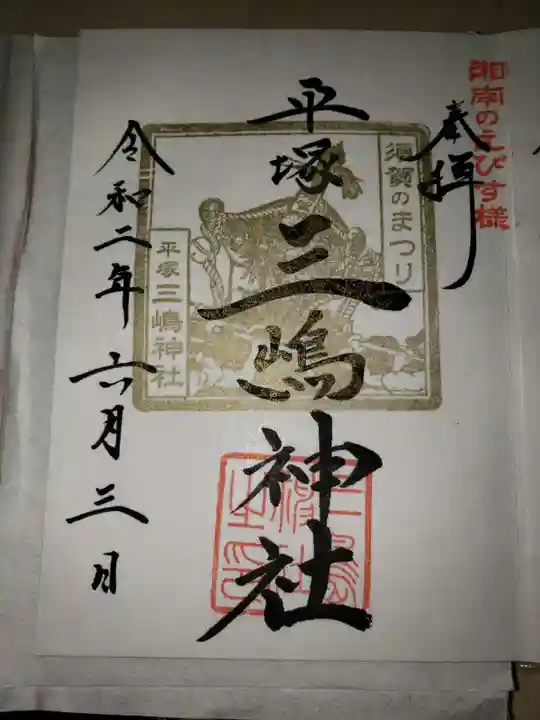 湘南のえびす様
奉拝
平塚三嶋神社
須賀のまつり
平塚三嶋神社
令和二年六月三日